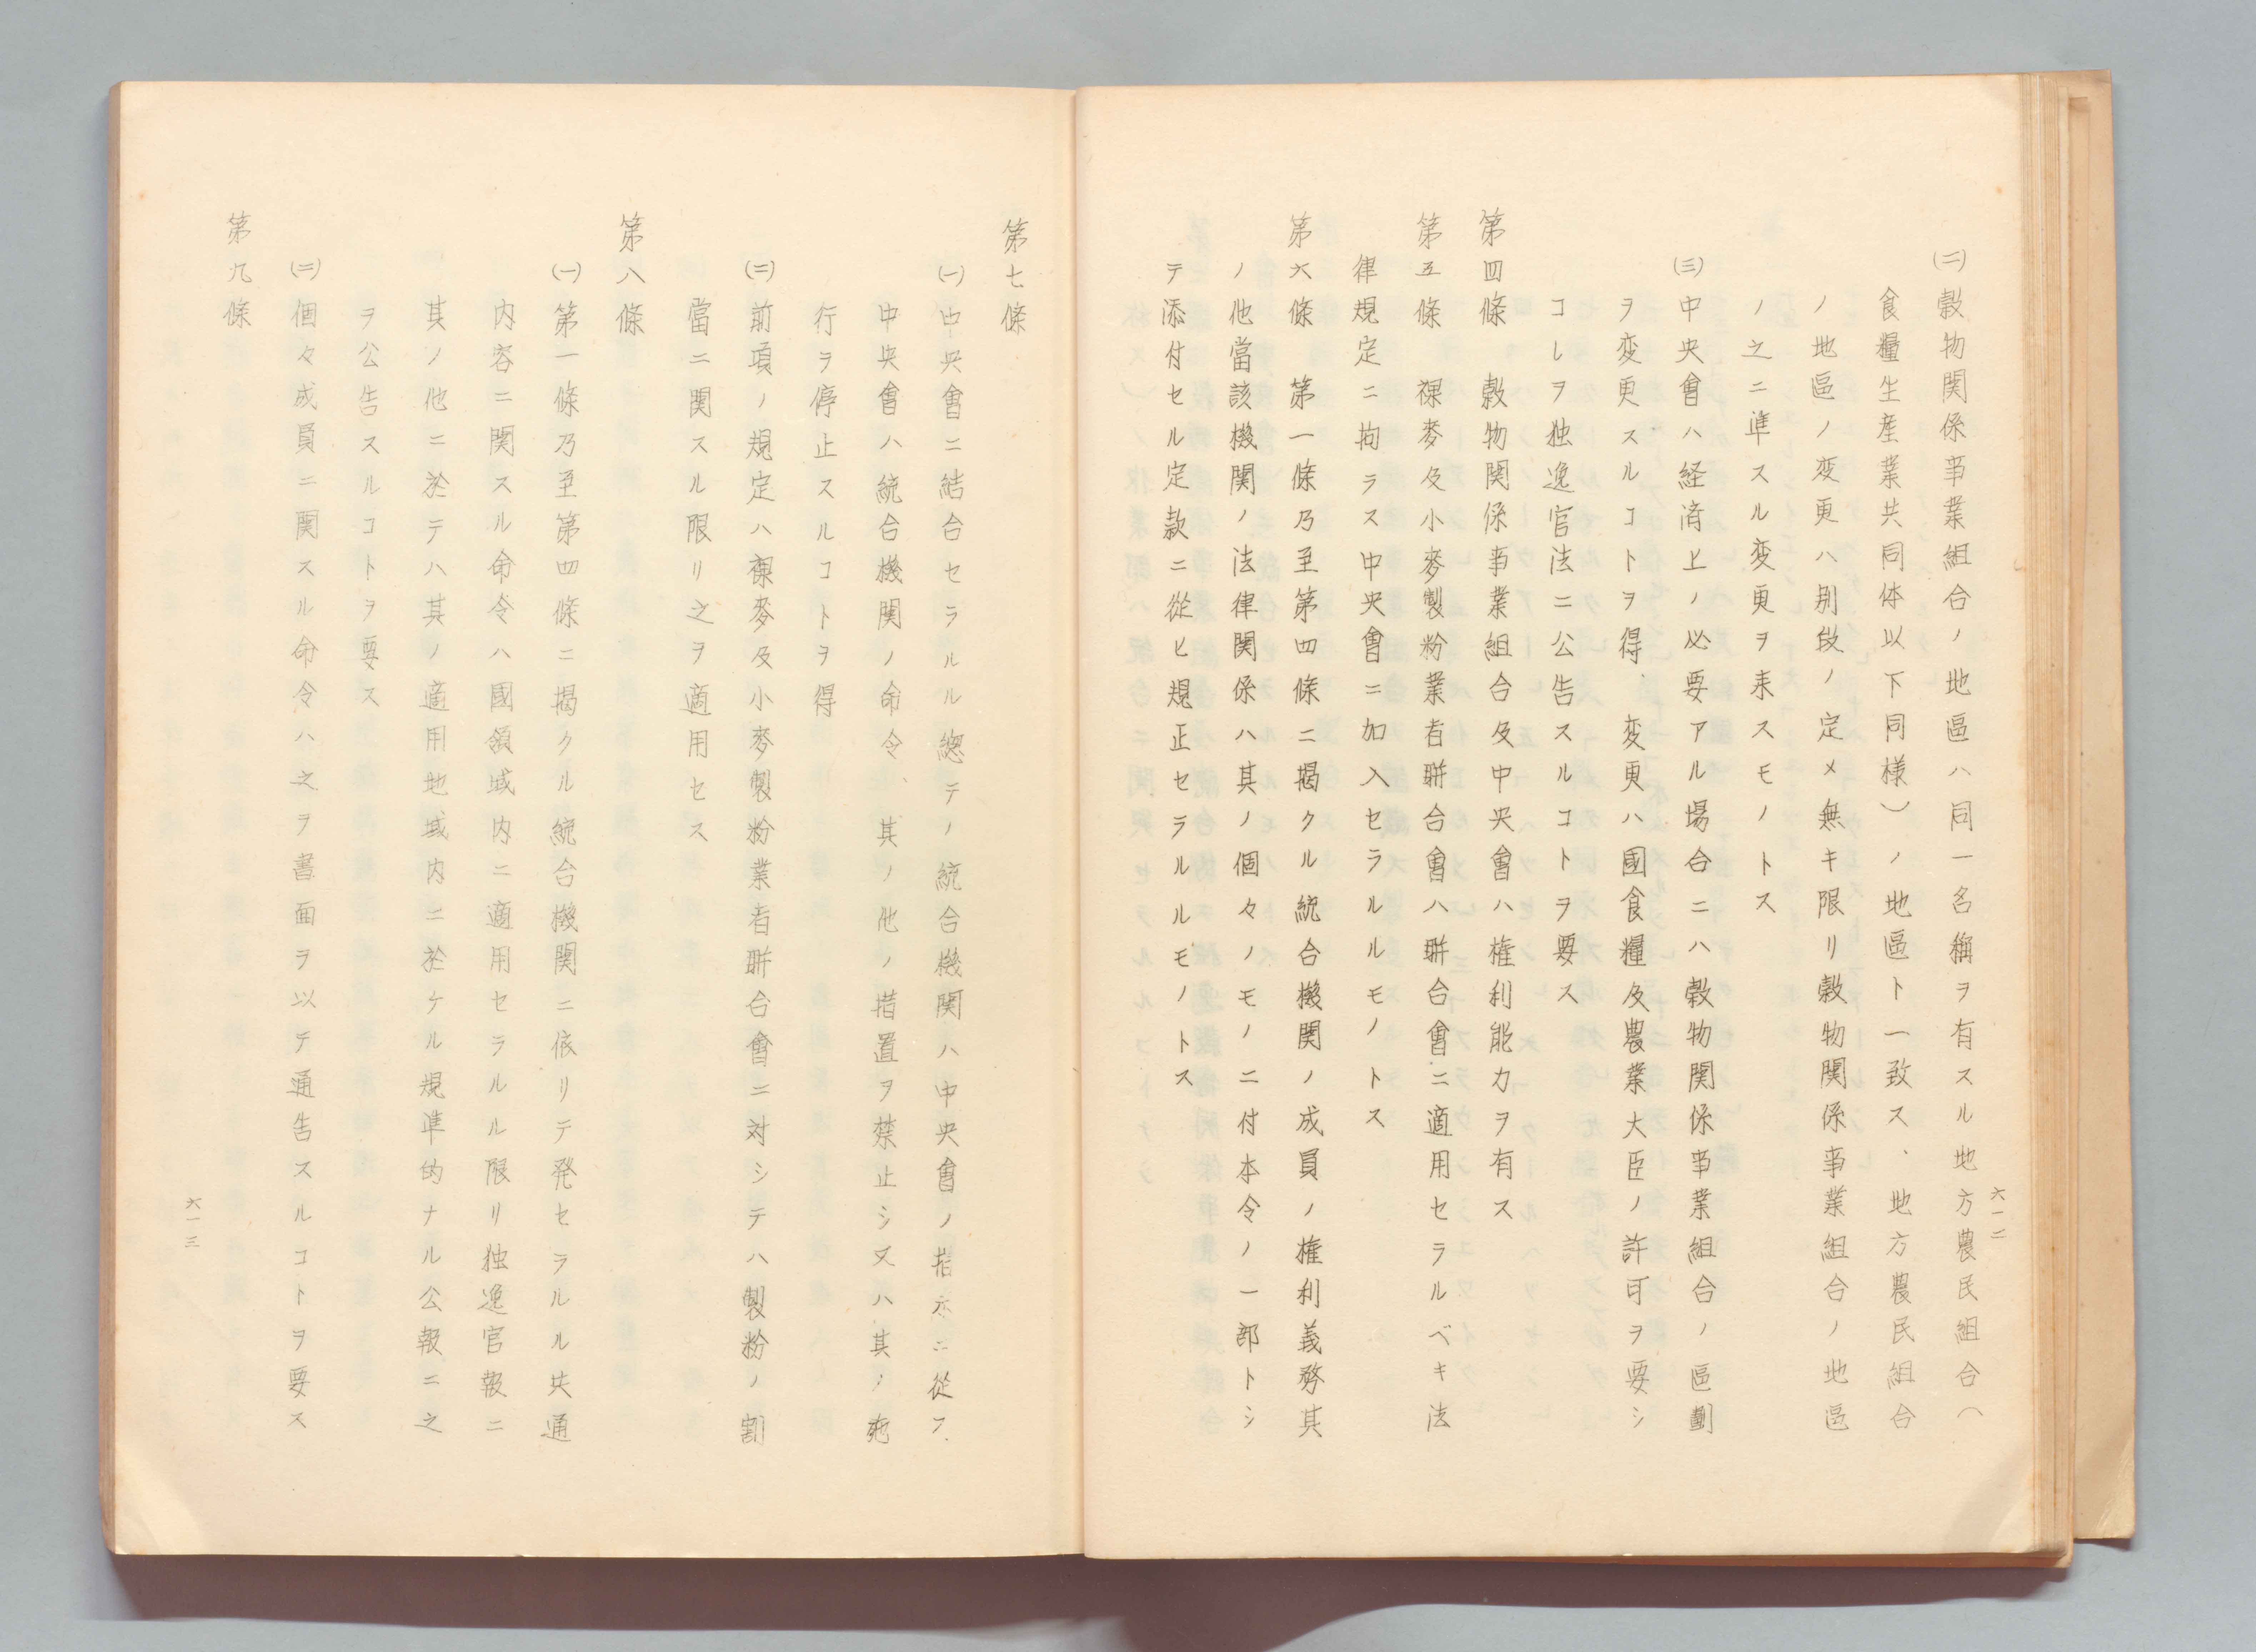 (二)穀物関係事業組合ノ地區ハ同一名稱ヲ有スル地方農民組合(
食糧生産業共同体以下同様)ノ地區ト一致ス、地方農民組合
ノ地區ノ変更ハ別段ノ定メ無キ限リ穀物関係事業組合ノ地區
ノ之ニ準スル変更ヲ来スモノトス
(三)中央會ハ経済上ノ必要アル場合ニハ穀物関係事業組合ノ區劃
ヲ変更スルコトヲ得、変更ハ國食糧及農業大臣ノ許可ヲ要シ
コレヲ独逸官法ニ公告スルコトヲ要ス
第四條 穀物関係事業組合及中央會ハ権利能力ヲ有ス
第五條 裸麥及小麥製粉業者聯合會ハ聯合會ニ適用セラルベキ法
律規定ニ拘ラス中央會ニ加入セラルルモノトス
第六條 第一條乃至第四條ニ揭クル統合機関ノ成員ノ権利義務其
ノ他當該機関ノ法律関係ハ其ノ個々ノモノニ付本令ノ一部トシ
テ添付セル定款ニ從ヒ規正セラルルモノトス
六一二
第七條
(一)中央會ニ結合セラルル總テノ統合機関ハ中央會ノ指示ニ從フ、
中央會ハ統合機関ノ命令、其ノ他ノ措置ヲ禁止シ又ハ其ノ施
行ヲ停止スルコトヲ得
(二)前項ノ規定ハ裸麥及小麥製粉業者聯合會ニ対シテハ製粉ノ割
當ニ関スル限リ之ヲ適用セス
第八條
(一)第一條乃至第四條ニ揭クル統合機関ニ依リテ発セラルル共通
内容ニ関スル命令ハ國領域内ニ適用セラルル限リ独逸官報ニ
其ノ他ニ於テハ其ノ適用地域内ニ於ケル規準的ナル公報ニ之
ヲ公告スルコトヲ要ス
(二)個々成員ニ関スル命令ハ之ヲ書面ヲ以テ通告スルコトヲ要ス
第九條
六一三